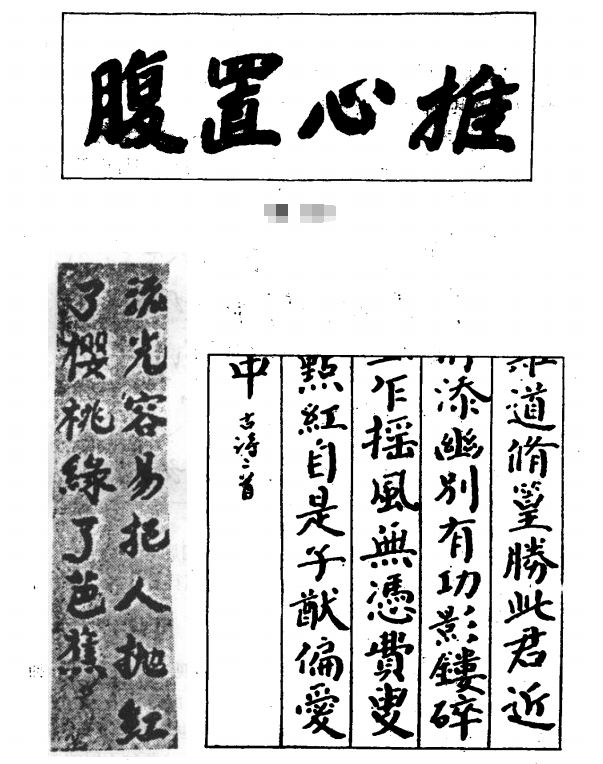 推心置腹
道脩篁勝此君近
添幽別有功影鏤碎
乍搖風無憑費叟
點紅自是子猷偏愛
中 古诗二首
流光容易把人抛紅
了櫻桃緑了芭蕉